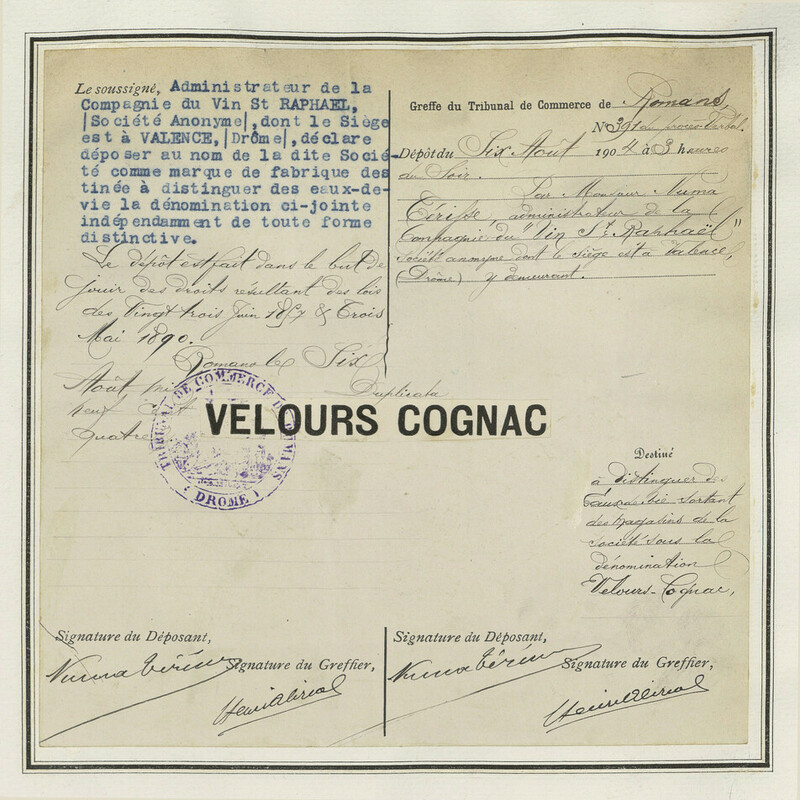 Le soussigné, Administrateur de la
Compagnie du Vin St RAPHAEL,
|Société Anonyme|, dont le Siège
est à VALENCE, |Drôme|, déclare
déposer au nom de la dite Socié-
té comme marque de fabrique des
tinée à distinguer des eaux-de-
vie la dénomination ci-jointe
indépendamment de toute forme
distinctive.
Le dépôt est fait dans le but de
jouir des droits résultant des lois
des Vingt trois Juin 1857 & Trois
Mai 1890.
Romans le Six
Août
neuf cent
quatre
Greffe du Tribunal de Commerce de Romans,
N° 391 du procès-Verbal.
Dépôt du Six Août 1904 à 3 heures
du Soir.
Par Monsieur Numa
administrateur de la
Compagnie du "Vin St. Raphaël"
société anonyme dont le siège est à Valence,
(Drôme) y demeurant.
Duplicata
VELOURS COGNAC
TRIBUNAL DE COMMERCE DE ROMANS
(DROME)
Destiné
à distinguer des
Eaux-de-vie sortant
des magasins de la
société sous la
dénomination
Velours-Cognac,
Signature du Déposant,
Numa
Signature du Greffier,
Signature du Déposant,
Numa
Signature du Greffier,